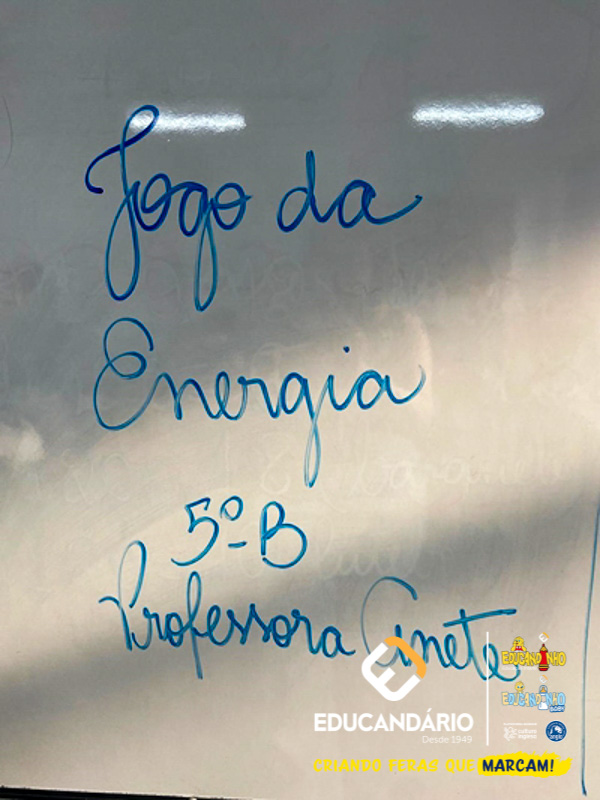 Jogo da
Energia
5º B
Professora Ginete
EDUCANDÁRIO
Desde 1949
EDUCANDINHO
EDUCANDINHO
CRIANDO FERAS QUE MARCAM!